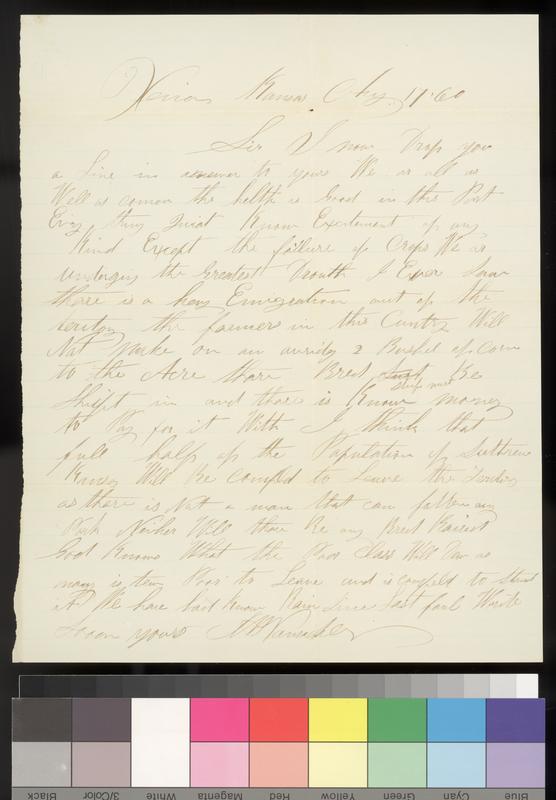 Xenia Kansas Aug 17 60
Sir I now Drop you
a Line in answer to yours We ar all as
Well as comon the helth is Good in this Part
Every thing Quiat Know Excitement of any
Kind Except the failure of Crops We ar
undergoing the Greatest Drouth I Ever Saw
thare is a hevy Emigration out of the
teritory the farmers in this Cuntry Will
Not Make on an avridg 2 Bushel of Corn
to the Acre thare Bred Be
Shipt in and thare is Know money
to Pay for it With I think that
full half of the Population of Suthern
Kansas Will Be compeld to Leave the Teritory
as there is Not a man that can fatten any
Pork Neither Will thare Be any Bred Raised
God Knows What the Poor Class Will Dow as
many is tow Poor to Leave and is compeld to Stand
it We have had Know Rain Since Last fall Write
Soon yours
Black 3/Color White Magenta Red Yellow Green Cyan Blue